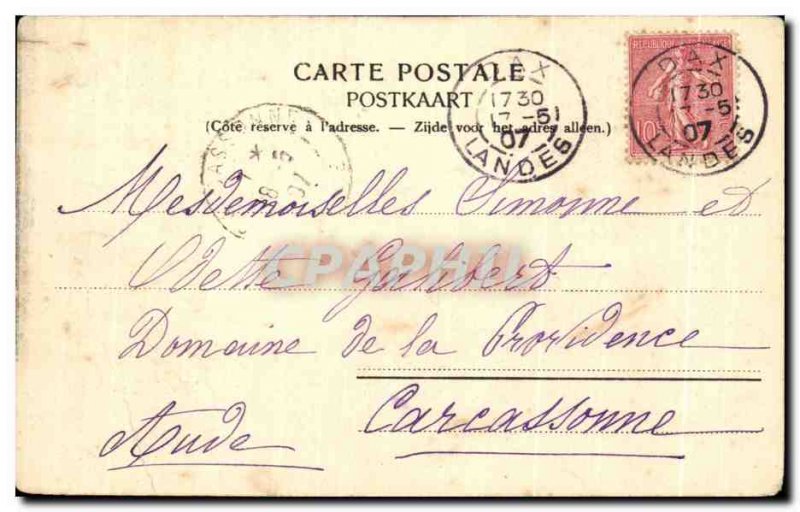 CARTE POSTALE
POSTKAART
(Côté réservé à l'adresse. — Zijde voor het adres alleen.)
DAX
17 30
17 -5
07
LANDES
REPUBLIQUE
10
DAX
17 30
17 -5
07
LANDES
CARCASSONNE
Mesdemoiselles Simonne et
Odette Galibert
Domaine de la Providence
Carcassonne
Aude
CPAPHIL